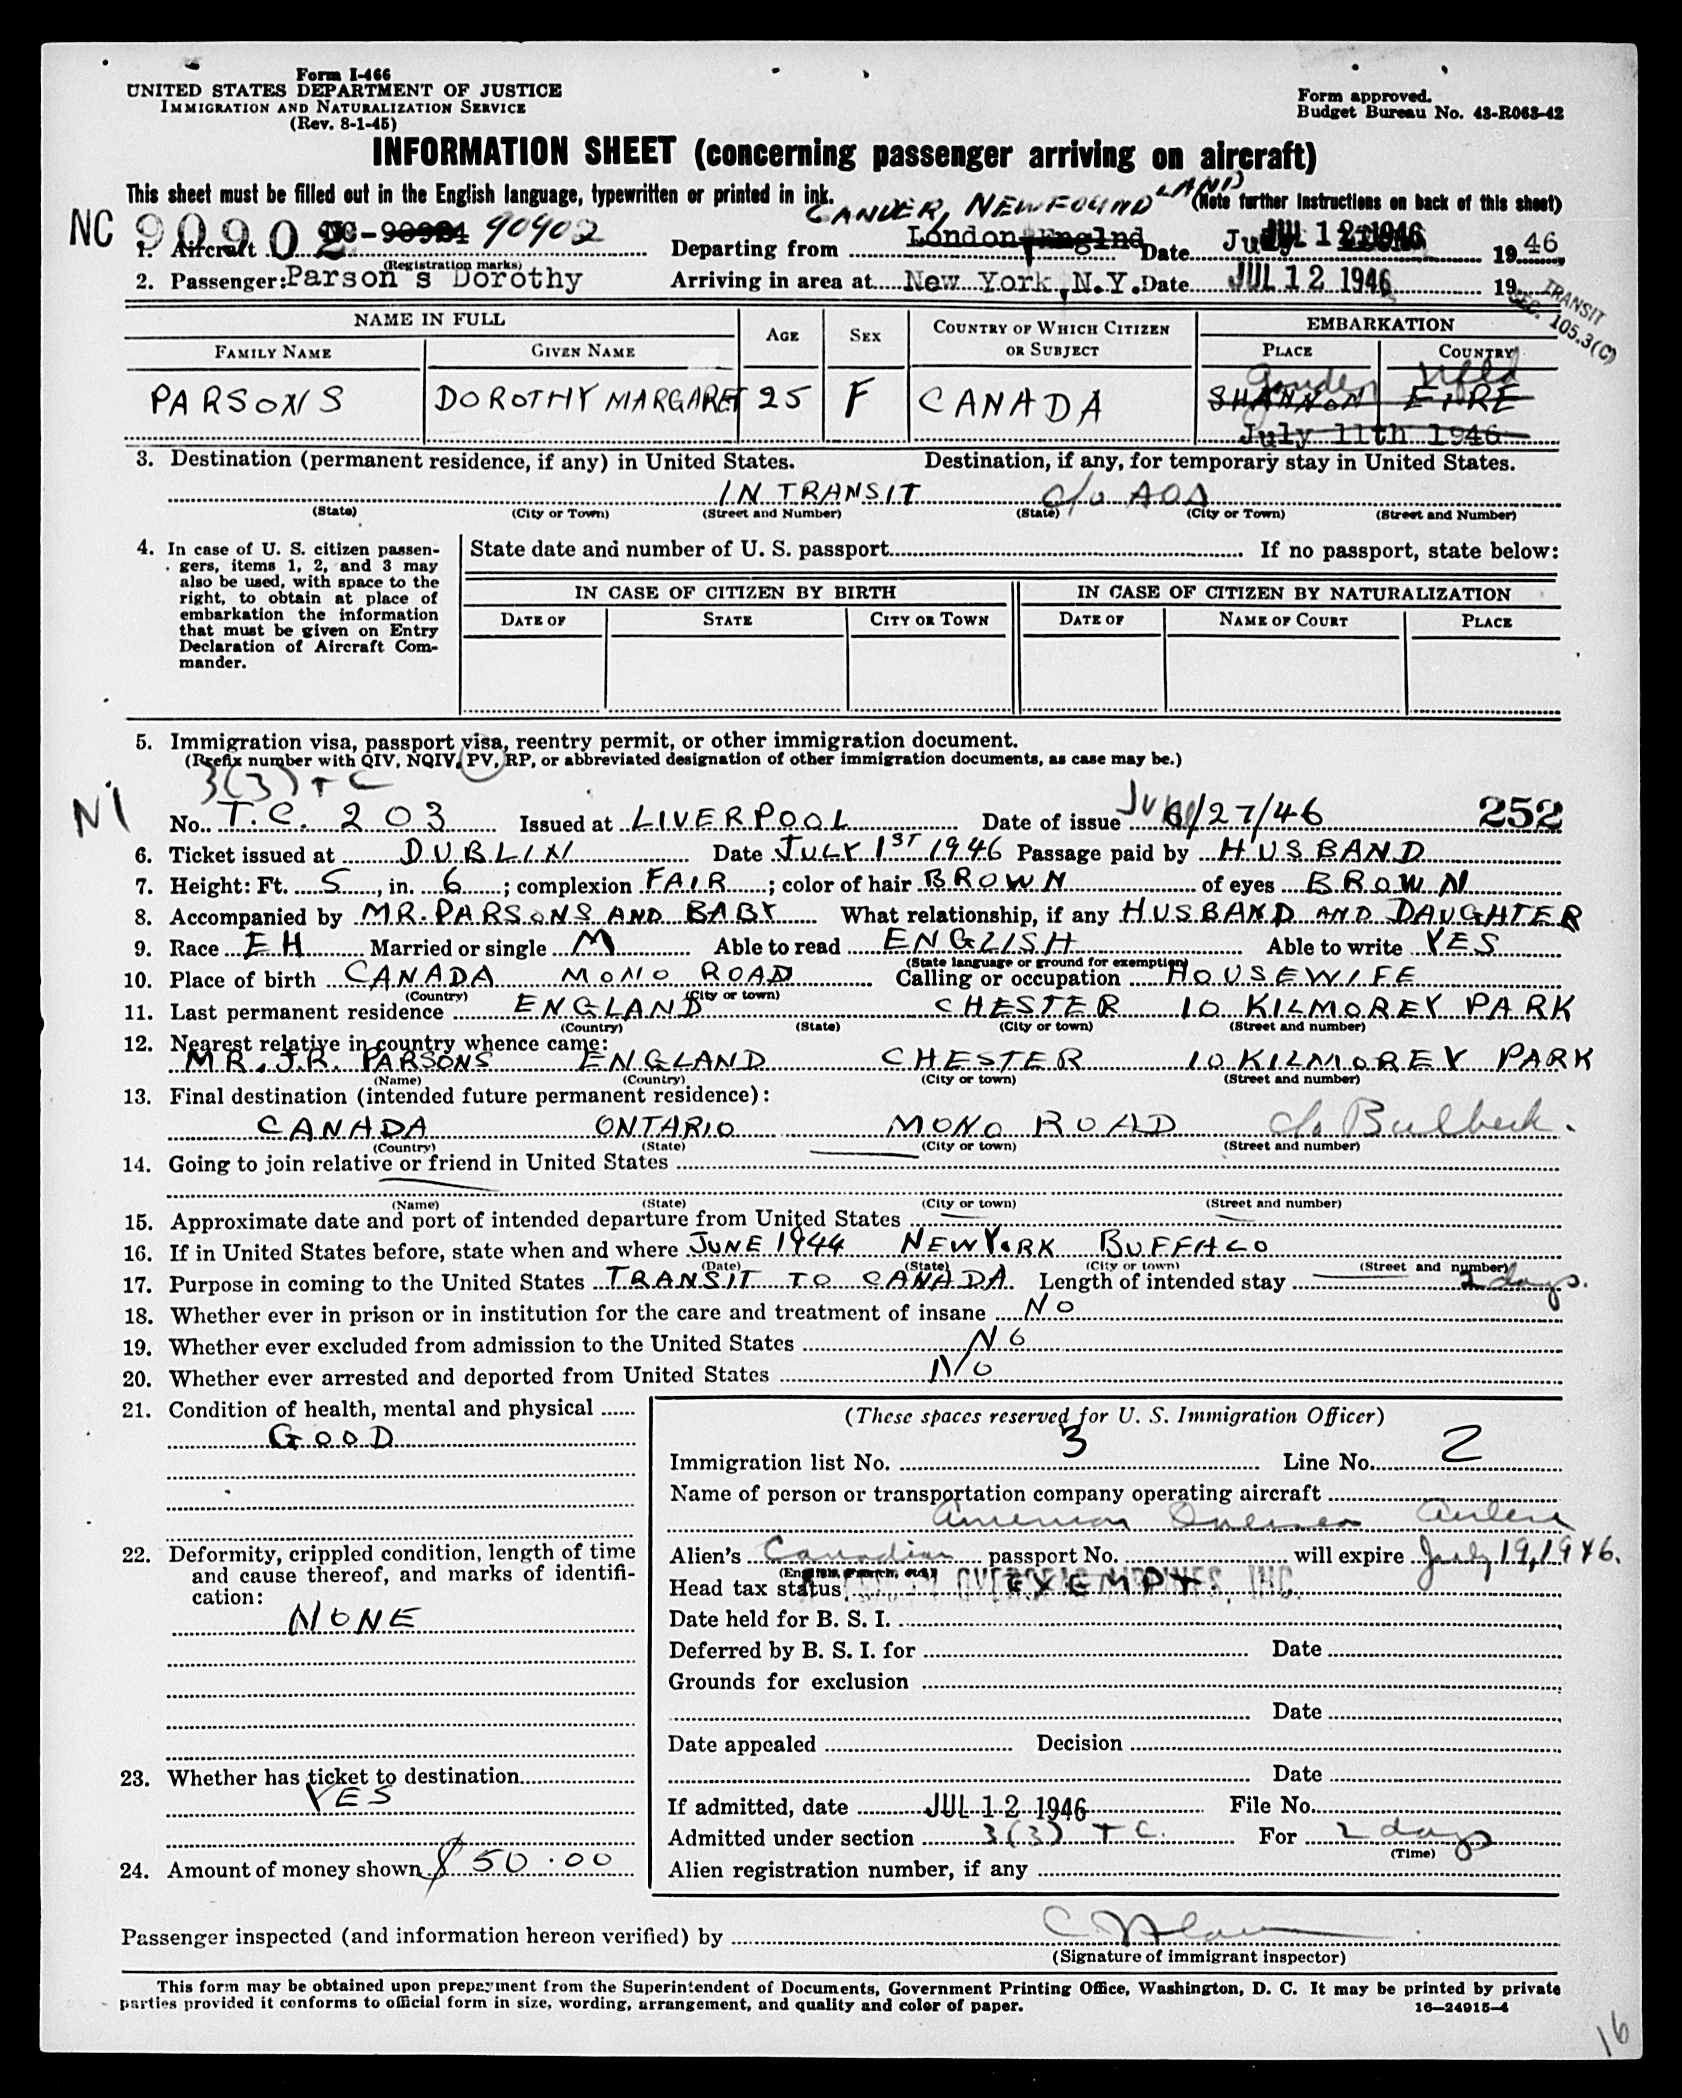 Form I-466
UNITED STATES DEPARTMENT OF JUSTICE
IMMIGRATION AND NATURALIZATION SERVICE
(Rev. 8-1-45)
Form approved.
Budget Bureau No. 43-R063-42
INFORMATION SHEET (concerning passenger arriving on aircraft)
This sheet must be filled out in the English language, typewritten or printed in ink.
(Note further instructions on back of this sheet)
GANDER, NEWFOUNDLAND
NC 90902
1. Aircraft NC-90984 90902 Departing from London, Englnd Date July JUL 12 1946 1946
(Registration marks)
2. Passenger: Parson's Dorothy Arriving in area at New York, N.Y. Date JUL 12 1946 19
TRANSIT
SEC. 105.3(C)
NAME IN FULL AGE SEX COUNTRY OF WHICH CITIZEN OR SUBJECT EMBARKATION
FAMILY NAME GIVEN NAME PLACE COUNTRY
Gander Nfld
PARSONS DOROTHY MARGARET 25 F CANADA SHANNON EIRE
July 11th 1946
3. Destination (permanent residence, if any) in United States. Destination, if any, for temporary stay in United States.
IN TRANSIT c/o AOA
(State) (City or Town) (Street and Number) (State) (City or Town) (Street and Number)
4. In case of U. S. citizen passengers, items 1, 2, and 3 may also be used, with space to the right, to obtain at place of embarkation the information that must be given on Entry Declaration of Aircraft Commander.
State date and number of U. S. passport If no passport, state below:
IN CASE OF CITIZEN BY BIRTH IN CASE OF CITIZEN BY NATURALIZATION
DATE OF STATE CITY OR TOWN DATE OF NAME OF COURT PLACE
5. Immigration visa, passport visa, reentry permit, or other immigration document.
(Prefix number with QIV, NQIV, PV, RP, or abbreviated designation of other immigration documents, as case may be.)
3(3) TC
NI
No. T.C. 203 Issued at LIVERPOOL Date of issue June 6/27/46 252
6. Ticket issued at DUBLIN Date JULY 1ST 1946 Passage paid by HUSBAND
7. Height: Ft. 5, in. 6; complexion FAIR; color of hair BROWN of eyes BROWN
8. Accompanied by MR. PARSONS AND BABY What relationship, if any HUSBAND AND DAUGHTER
9. Race EH Married or single M Able to read ENGLISH Able to write YES
(State language or ground for exemption)
10. Place of birth CANADA MONO ROAD Calling or occupation HOUSEWIFE
(Country) (City or town)
11. Last permanent residence ENGLAND CHESTER 10 KILMOREY PARK
(Country) (State) (City or town) (Street and number)
12. Nearest relative in country whence came:
MR. J.R. PARSONS ENGLAND CHESTER 10 KILMOREY PARK
(Name) (Country) (City or town) (Street and number)
13. Final destination (intended future permanent residence):
CANADA ONTARIO MONO ROAD c/o Bulbeck.
(Country) (State) (City or town) (Street and number)
14. Going to join relative or friend in United States
(Name) (State) (City or town) (Street and number)
15. Approximate date and port of intended departure from United States
16. If in United States before, state when and where JUNE 1944 NEW YORK BUFFALO
(Date) (State) (City or town) (Street and number)
17. Purpose in coming to the United States TRANSIT TO CANADA. Length of intended stay 2 days.
18. Whether ever in prison or in institution for the care and treatment of insane NO
19. Whether ever excluded from admission to the United States NO
20. Whether ever arrested and deported from United States NO
21. Condition of health, mental and physical
GOOD
22. Deformity, crippled condition, length of time and cause thereof, and marks of identification:
NONE
23. Whether has ticket to destination
YES
24. Amount of money shown $50.00
(These spaces reserved for U. S. Immigration Officer)
Immigration list No. 3 Line No. 2
Name of person or transportation company operating aircraft
American Overseas Airlines
Alien's Canadian passport No. will expire July 19, 1946.
(English, French, etc.)
OVERSEAS AIRLINES, INC.
Head tax status EXEMPT
Date held for B. S. I.
Deferred by B. S. I. for Date
Grounds for exclusion
Date
Date appealed Decision
Date
If admitted, date JUL 12 1946 File No.
Admitted under section 3(3) TC. For 2 days
(Time)
Alien registration number, if any
Passenger inspected (and information hereon verified) by
(Signature of immigrant inspector)
This form may be obtained upon prepayment from the Superintendent of Documents, Government Printing Office, Washington, D. C. It may be printed by private
parties provided it conforms to official form in size, wording, arrangement, and quality and color of paper. 16—24915-4
16